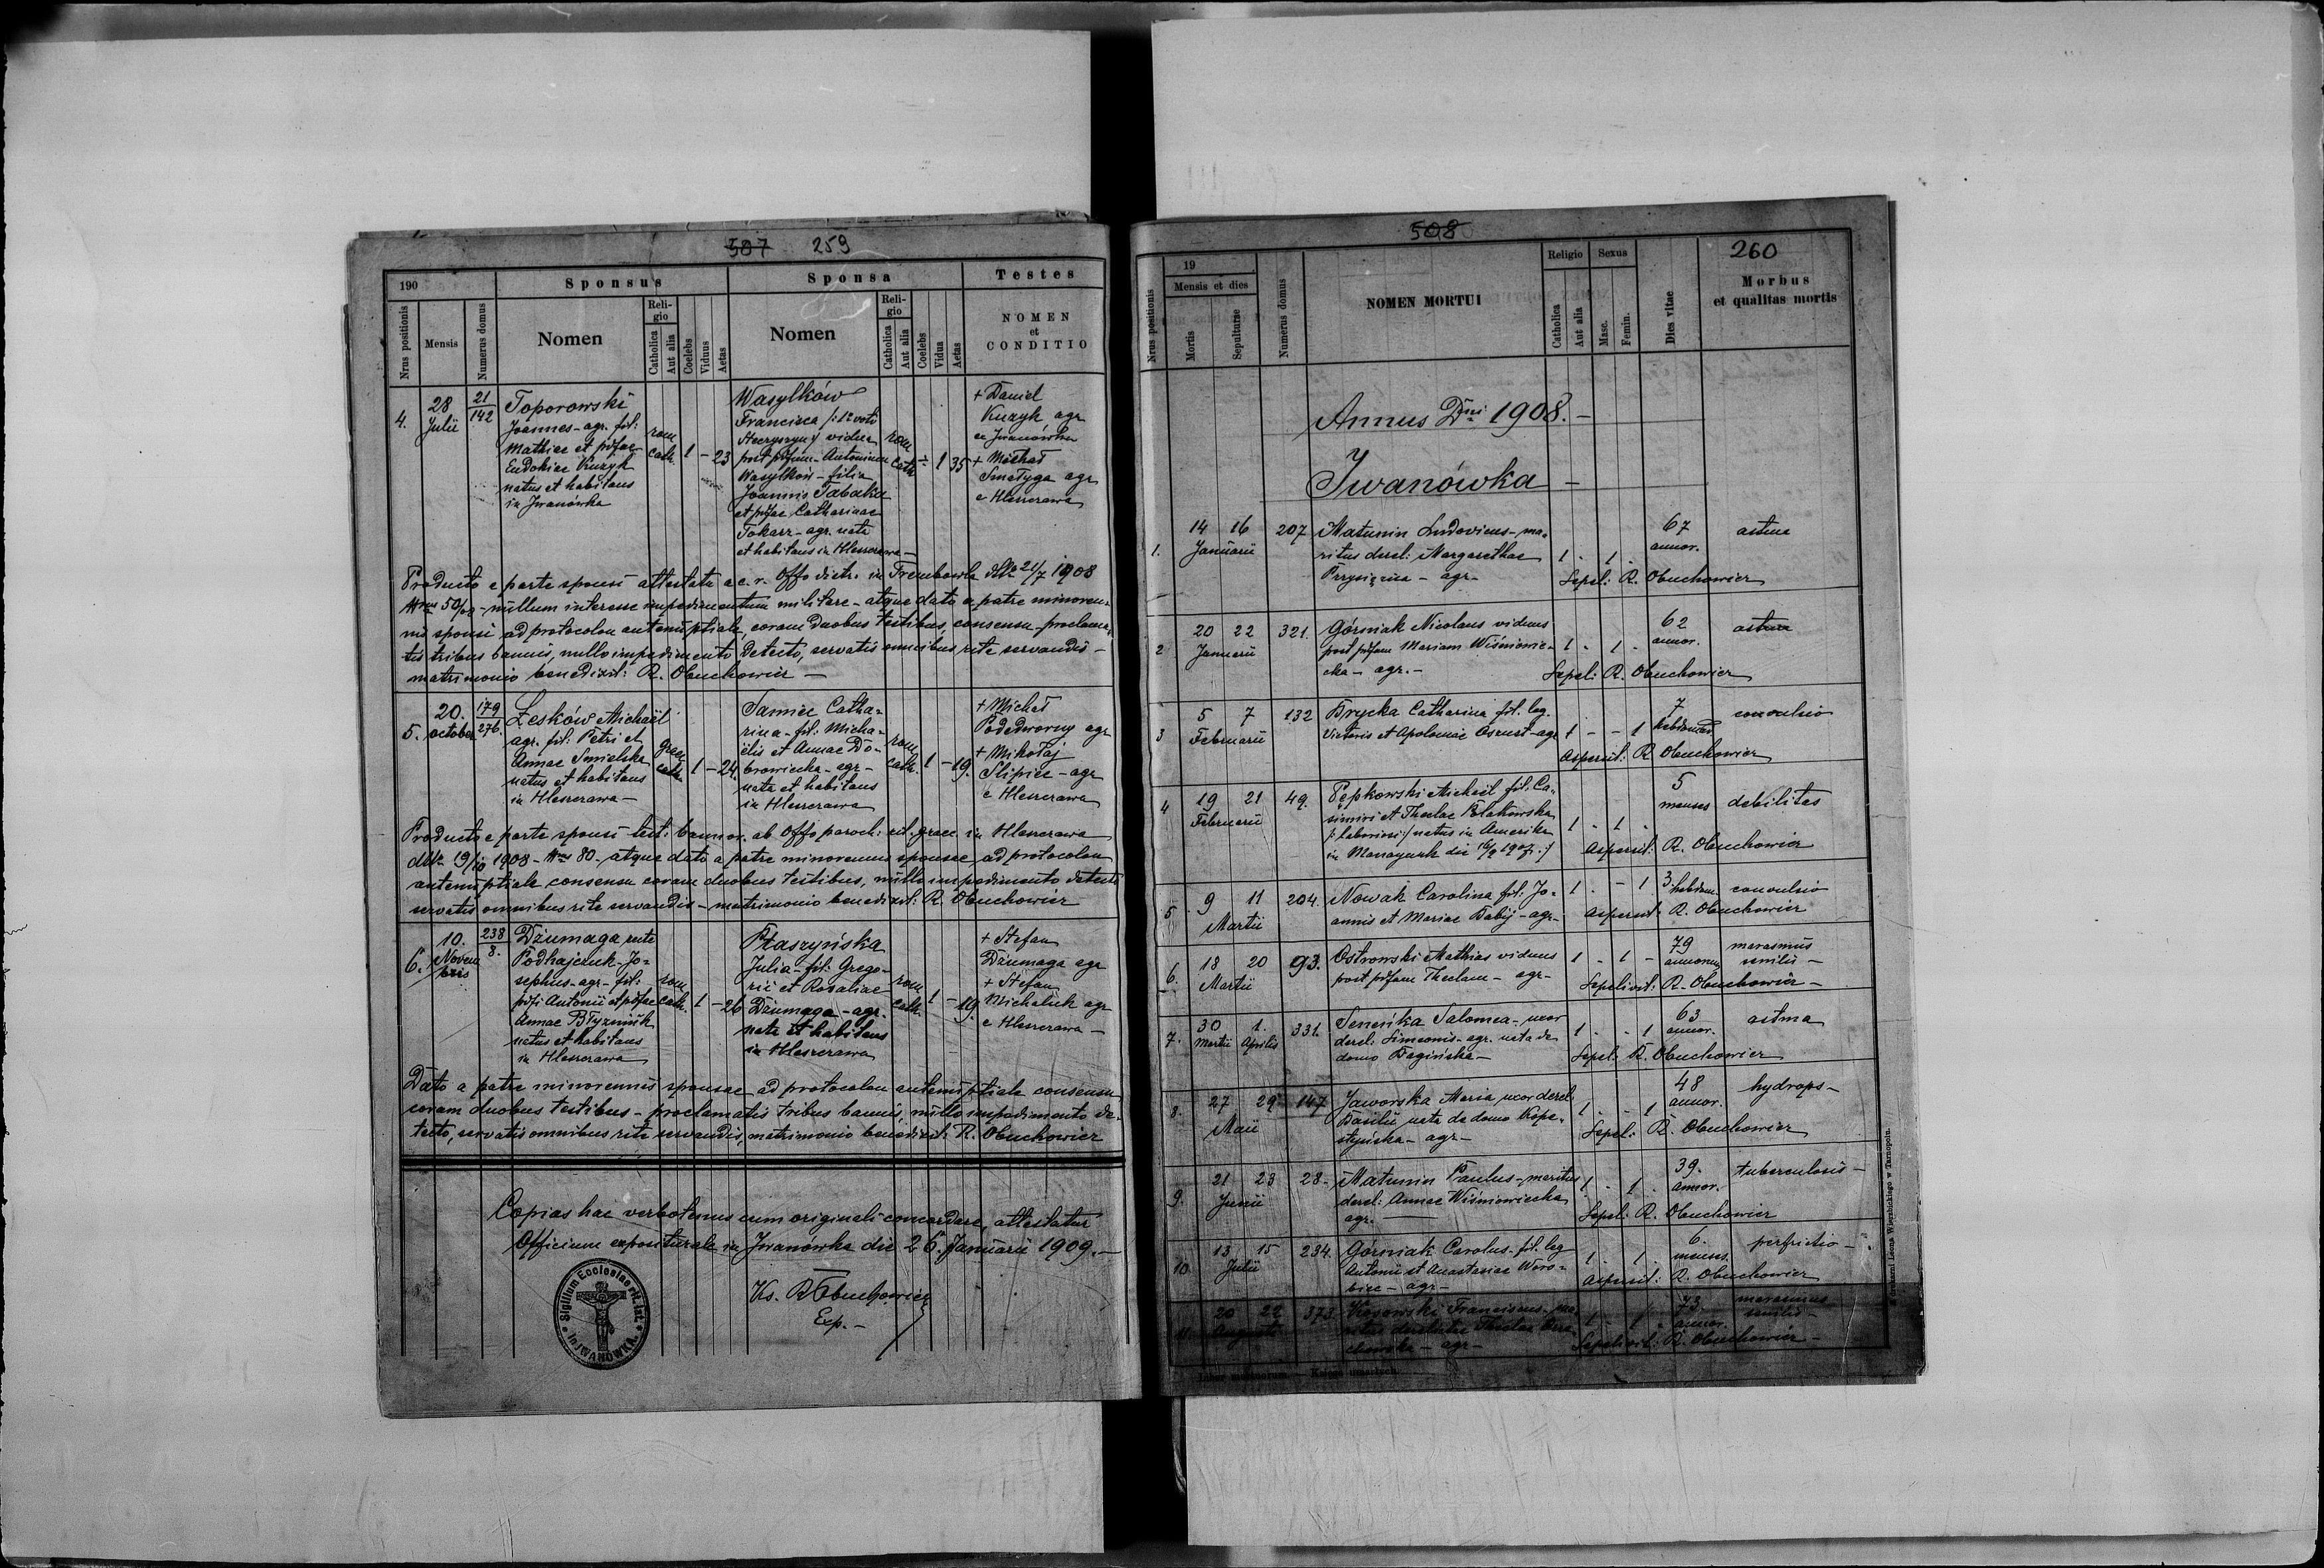 507 259
190
Sponsus
Sponsa
Testes
Nrus positionis
Mensis
Numerus domus
Nomen
Religio
Catholica
Aut alia
Coelebs
Viduus
Aetas
Nomen
Religio
Catholica
Aut alia
Coelebs
Vidua
Aetas
NOMEN
et
CONDITIO
4.
28
Julii
21
142
Toporowski
Joannes - agr. fil:
Mathiae et pdfae
Eudokiae Kuzyk
natus et habitans
in Jwanówka
rom
cath.
1 - 23
Wasylków
Francisca /: 1o voti
vidua
post pdfum - Antonium
Wasylków - filia
Joannis Tabaka
et pdfae Catharinae
Tokarz - agr. nata
et habitans in Hleszczawa -
rom
cath
- 1 35
+ Daniel
Kuzyk agr
e Jwanówka
+ Michał
Smetyga agr
e Hleszczawa
Producto e parte sponsi attestato a c. r. Offo distr. in Trembowla ddto 21/7 1908
Nrus 50/ - nullum interesse impedimentum militare - atque dato a patre minoren-
nis sponsi ad protocolon antenuptiale, coram duobus testibus, consensu - proclama-
tis tribus bannis, nullo impedimento detecto, servatis omnibus rite servandis -
matrimonio benedixit: R. Obuchowicz -
5.
20.
october
179
276.
Łesków Michaël
agr. fil: Petri et
Annae Smielska
natus et habitans
in Hleszczawa -
graec
cath.
1 - 24.
Janiec Catha-
rina - fil: Micha-
ëlis et Annae Do-
browiecka - agr -
nata et habitans
in Hleszczawa
rom
cath.
1 - 19.
+ Michał
Podedworny agr
+ Mikołaj
Slipiec - agr
e Hleszczawa
Producto e parte sponsi test: bannor. ab Offo paroch: rit. graec. in Hleszczawa
ddto 19/10 1908 - Nrus 80 - atque dato a patre minorennis sponsae ad protocolon
antenuptiale consensu coram duobus testibus, nullo impedimento detecto
servatis omnibus rite servandis - matrimonio benedixit: R. Obuchowicz
6.
10.
Novem
bris
238
8.
Dżumaga recte
Podhajczuk - Jo-
sephus - agr - fil:
pdfi Antonii et pdfae
Annae Błyźniuk
natus et habitans
in Hleszczawa
rom
cath.
1 - 26
Ptaszyńska
Julia - fil: Grego-
rii et Rosaliae
Dżumaga - agr.
nata et habitans
in Hleszczawa
rom
cath.
1 - 19.
+ Stefan
Dżumaga agr
+ Stefan
Michaluk agr
e Hleszczawa -
Dato a patre minorennis sponsae ad protocolon antenuptiale consensu
coram duobus testibus - proclamatis tribus bannis, nullo impedimento de-
tecto, servatis omnibus rite servandis, matrimonio benedixit: R. Obuchowicz
Copias hac verbotenus cum originali concordare, attestatur
Officium expositurale in Jwanówka die 26. Januarii 1909. -
Ks. R Obuchowicz
Exp. -
Sigillum Ecclesiae rit. lat.
in JWANÓWKA
508
260
Nrus positionis
19
Mensis et dies
Mortis
Sepulturae
Numerus domus
NOMEN MORTUI
Religio
Catholica
Aut alia
Sexus
Masc.
Femin.
Dies vitae
Morbus
et qualitas mortis
Annus Dni 1908. -
Jwanówka -
1.
14 16
Januarii
207
Matunin Ludovicus - ma-
ritus derel: Margarethae
- agr -
1 - 1 -
67
annor.
astma
Sepel: R. Obuchowicz
2
20 22
Januarii
321.
Górniak Nicolaus viduus
post pdfam Mariam Wiśniowie-
cka - agr. -
1 - 1 -
62
annor.
astma
Sepel: R. Obuchowicz
3
5 7
Februarii
132
Brycka Catharina fil. leg.
Victoris et Apoloniae - agr
1 - - 1
7
hebdomad
convulsio
Aspersit: R. Obuchowicz
4
19 21
Februarii
49.
Pępkowski Michaël fil. Ca-
simiri et Theclae Polakowska
/: laboriosi :/ natus in Amerika
in Manayunk die 16/9 1907. :/
1 - 1 -
5
menses
debilitas
Aspersit: R. Obuchowicz
5
9 11
Martii
204.
Nowak Carolina fil: Jo-
annis et Mariae Babij - agr -
1 - - 1
3
hebdom.
convulsio
Aspersit: R. Obuchowicz
6.
18 20
Martii
93.
Ostrowski Mathias viduus
post pdfam Theclam - agr -
1 - 1 -
79
annorum
marasmus
senilis -
Sepelivit: R. Obuchowicz -
7.
30 1.
Martii Aprilis
331.
Salomea - uxor
derel: Simeonis - agr. nata de
domo Bagińska -
1 - - 1
63
annor.
astma
Sepel: R. Obuchowicz
8.
27 29
Maii
147
Jaworska Maria uxor derel.
Basilii nata de domo Kope-
styńska - agr -
1 - - 1
48
annor.
hydrops -
Sepel: R. Obuchowicz
9.
21 23
Junii
28 -
Matunin Paulus - maritus
derel: Annae Wiśniowiecka
agr. -
1 - 1 -
39.
annor.
tuberculosis -
Sepel: R. Obuchowicz
10
13 15
Julii
234.
Górniak Carolus - fil. leg
Antonii et Anastasiae Woro-
biec - agr -
1 - 1
6.
menses.
perfrictio -
Aspersit: R. Obuchowicz
11.
20 22
Augusti
373
Franciscus - ma-
ritus derelictae Theclae
- agr -
1 - 1 -
73.
annor.
marasmus
senilis -
Sepelivit: R. Obuchowicz -
Liber mortuorum. — Księga umartych.
Z drukarni Leona Wierzbickiego w Tarnopolu.